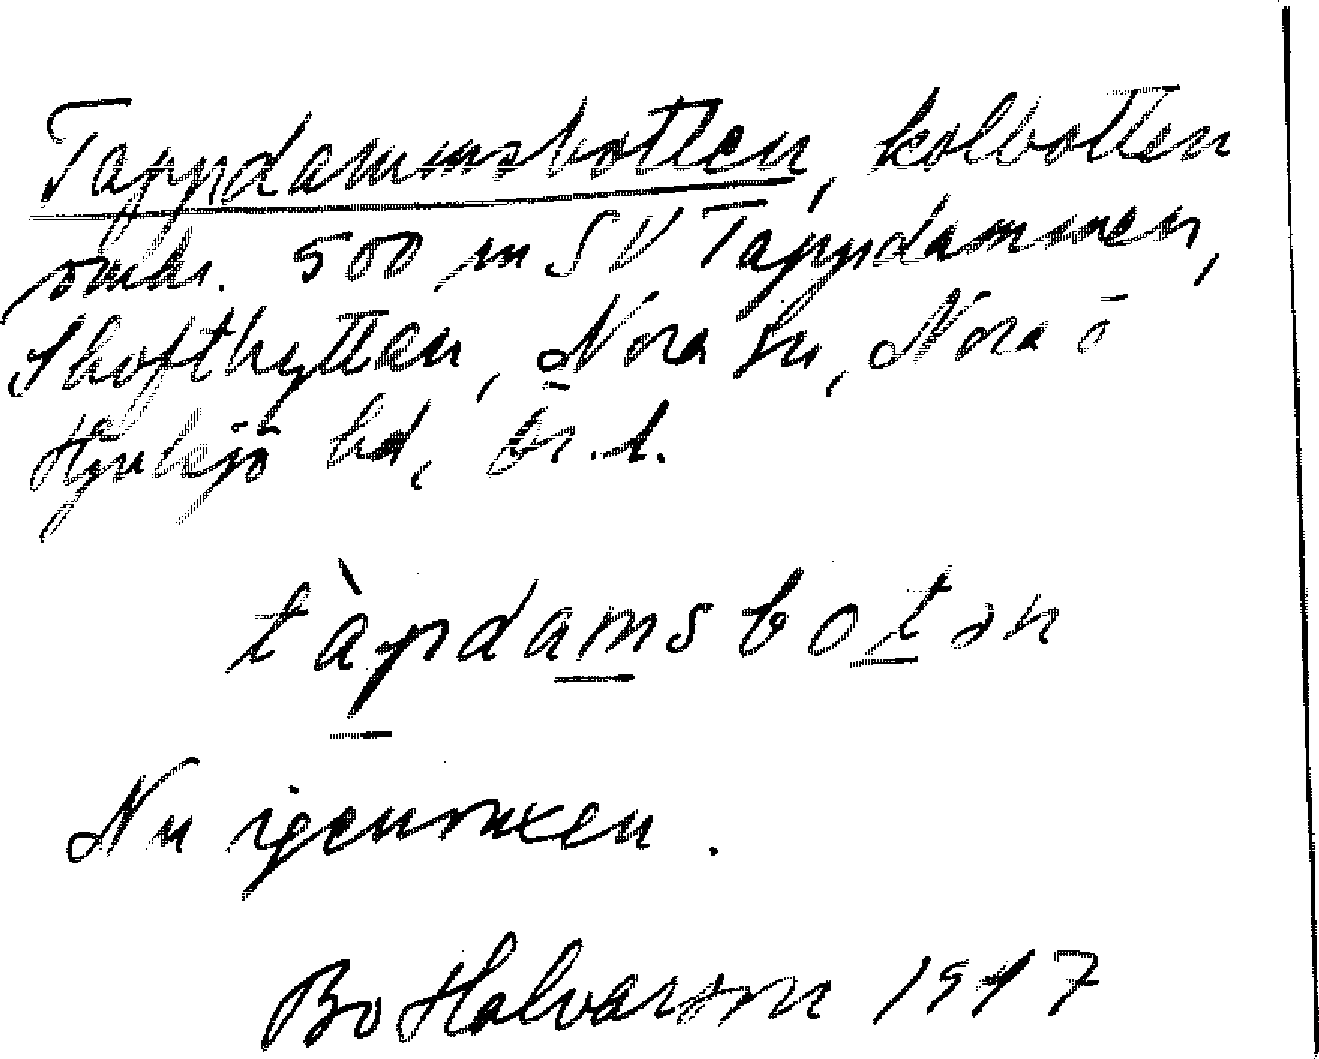 Tappdammsbotten, kolbotten
omkr. 500 m SV Tappdammen,
Skofthyttan, Nora sn, Nora o
Hjulsjö hd, Ör. l.
tàpdamsbotən
Nu igenvuxen.
Bo Halvarson 1947